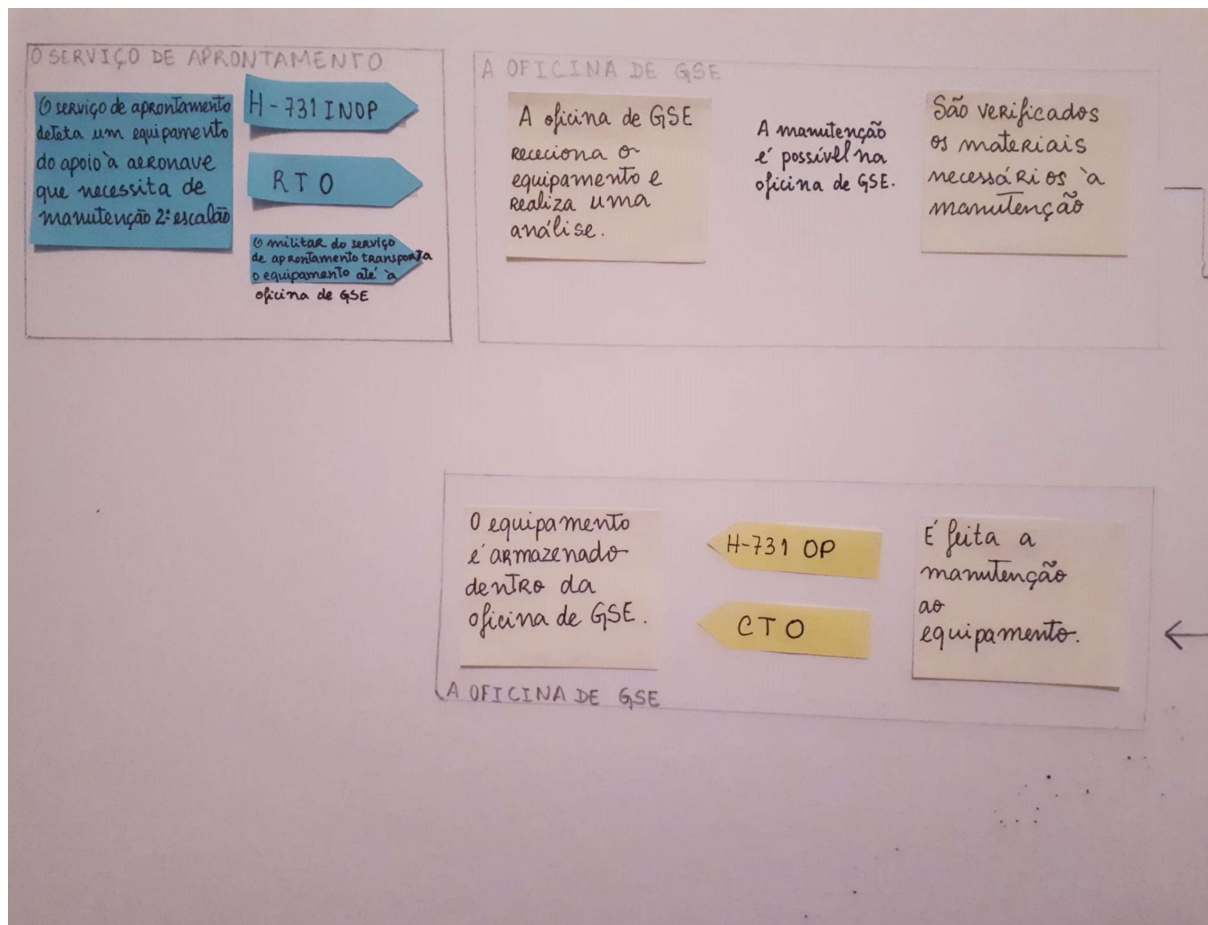 O SERVIÇO DE APRONTAMENTO
O serviço de aprontamento
deteta um equipamento
do apoio à aeronave
que necessita de
manutenção 2º escalão
H-731 INOP
RTO
O militar do serviço
de aprontamento transporta
o equipamento até à
oficina de GSE
A OFICINA DE GSE
A oficina de GSE
receciona o
equipamento e
realiza uma
análise.
A manutenção
é possível na
oficina de GSE.
São verificados
os materiais
necessários à
manutenção
O equipamento
é armazenado
dentro da
oficina de GSE.
H-731 OP
CTO
É feita a
manutenção
ao
equipamento.
A OFICINA DE GSE